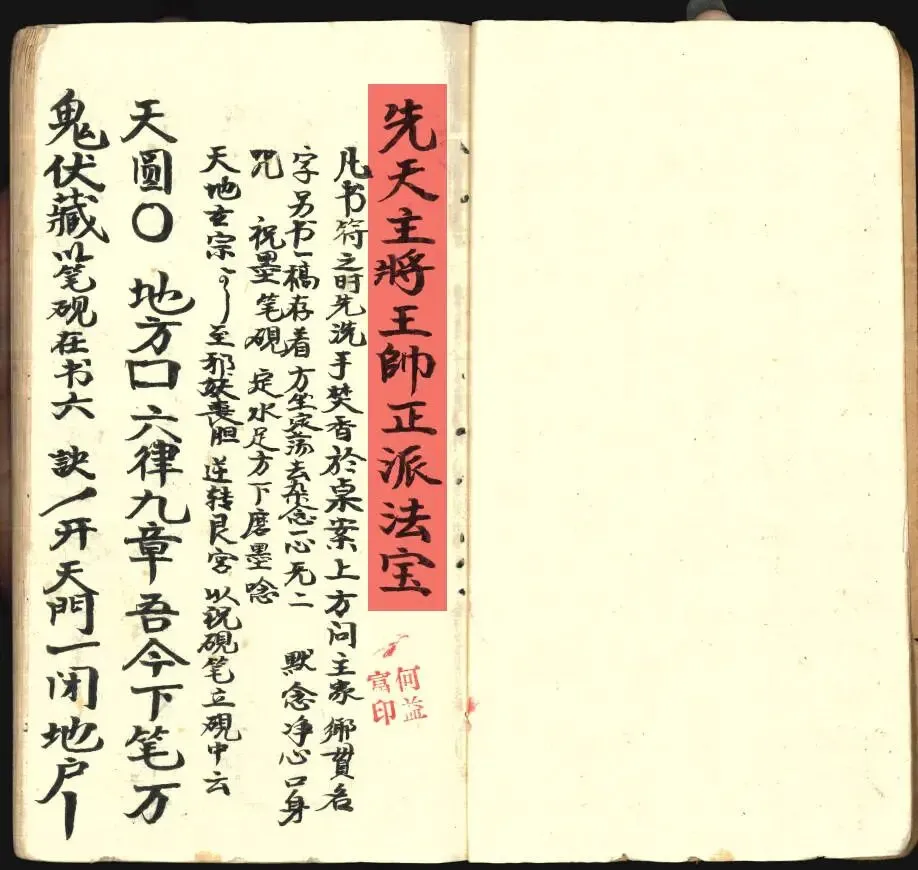 先天主將王帥正派法宝
何益富印
凡书符之时先洗手焚香於桌案上方问主家鄉貫名
字另书一稿存着方坐定荡去杂念一心无二 默念净心口身
咒 祝墨笔硯 定水足方下磨墨念
天地玄宗 至邪妖喪胆 逆转艮宫 以祝硯笔立硯中云
天圆〇 地方口六律九章吾今下笔万
鬼伏藏以笔硯在书六 訣一开天門一闭地户丨